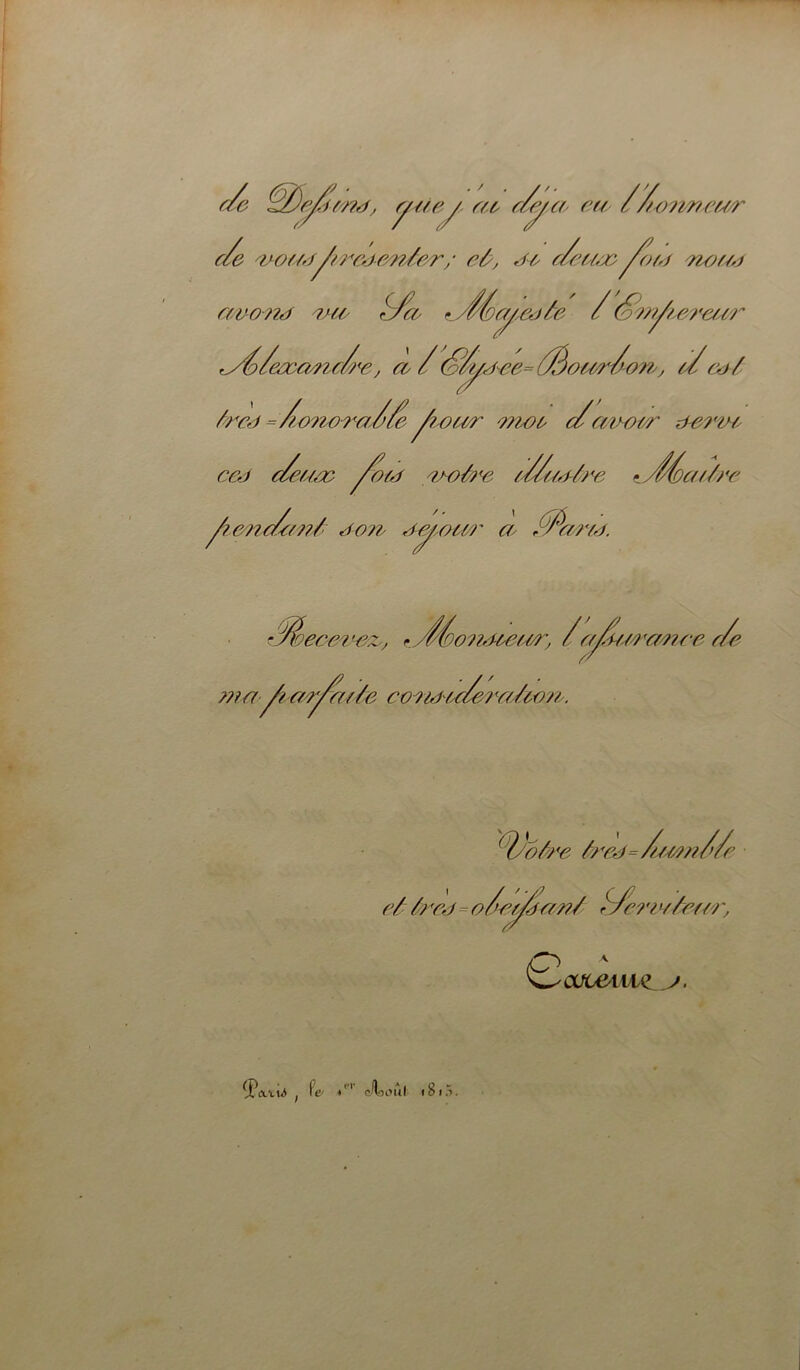 de Deſsins, que j'ai déja eu l'honneur
de vous présenter; et, si deux fois nous
avons vu Sa Majesté l'Empereur
Alexandre, à l'Elysée=Bourbon, il est
très=honorable pour moi d'avoir servi
ces deux fois votre illustre Maître
pendant son séjour à Paris.
Recevez, Monsieur, l'aſsurance de
ma parfaite considération.
Votre très=humble
et très=obéiſsant Serviteur,
Carême.
Paris, le 1er Août 1815.